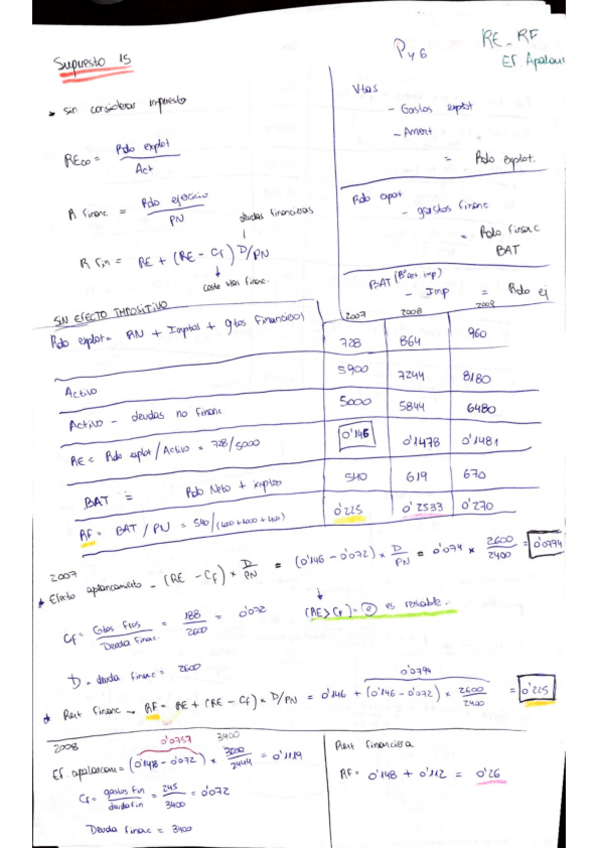 Supuesto 15
P y G
RE - RF
Ef. Apalanc
* sin considerar impuesto
REco = Rdo explot / Act
R financ = Rdo ejercicio / PN
deudas financieras
R fin = RE + (RE - Cf) D/PN
coste financ.
Vtas
- Gastos explot
- Amort
= Rdo explot.
Rdo expot
- gastos financ
= Rdo financ
BAT
BAT (Bº ant. imp)
- Imp = Rdo ej
SIN EFECTO IMPOSITIVO
2007 2008 2009
Rdo explot = RN + Imptos + gtos financieros 728 864 960
Activo 5900 7244 8180
Activo - deudas no financ 5000 5844 6480
RE = Rdo explot / Activo = 728/5000 0'146 0'1478 0'1481
BAT = Rdo Neto + imptos 540 619 670
RF = BAT / PN = 540/ 0'225 0'2533 0'270
2007
* Efecto apalancamiento - (RE - Cf) x D/PN = (0'146 - 0'072) x D/PN = 0'074 x 2600/2400 = 0'0794
(RE > Cf) = es rentable.
Cf = Gtos fros / Deuda financ. = 188/2600 = 0'072
D = deuda financ = 2600
0'0794
* Rent financ → RF = RE + (RE - Cf) x D/PN = 0'146 + (0'146 - 0'072) x 2600/2400 = 0'225
2008
0'0757 3400
Ef. apalancam = (0'148 - 0'072) x 3000/2444 = 0'1119
Cf = gastos fin / deuda fin = 245/3400 = 0'072
Deuda financ = 3400
Rent financiera
RF = 0'148 + 0'112 = 0'26